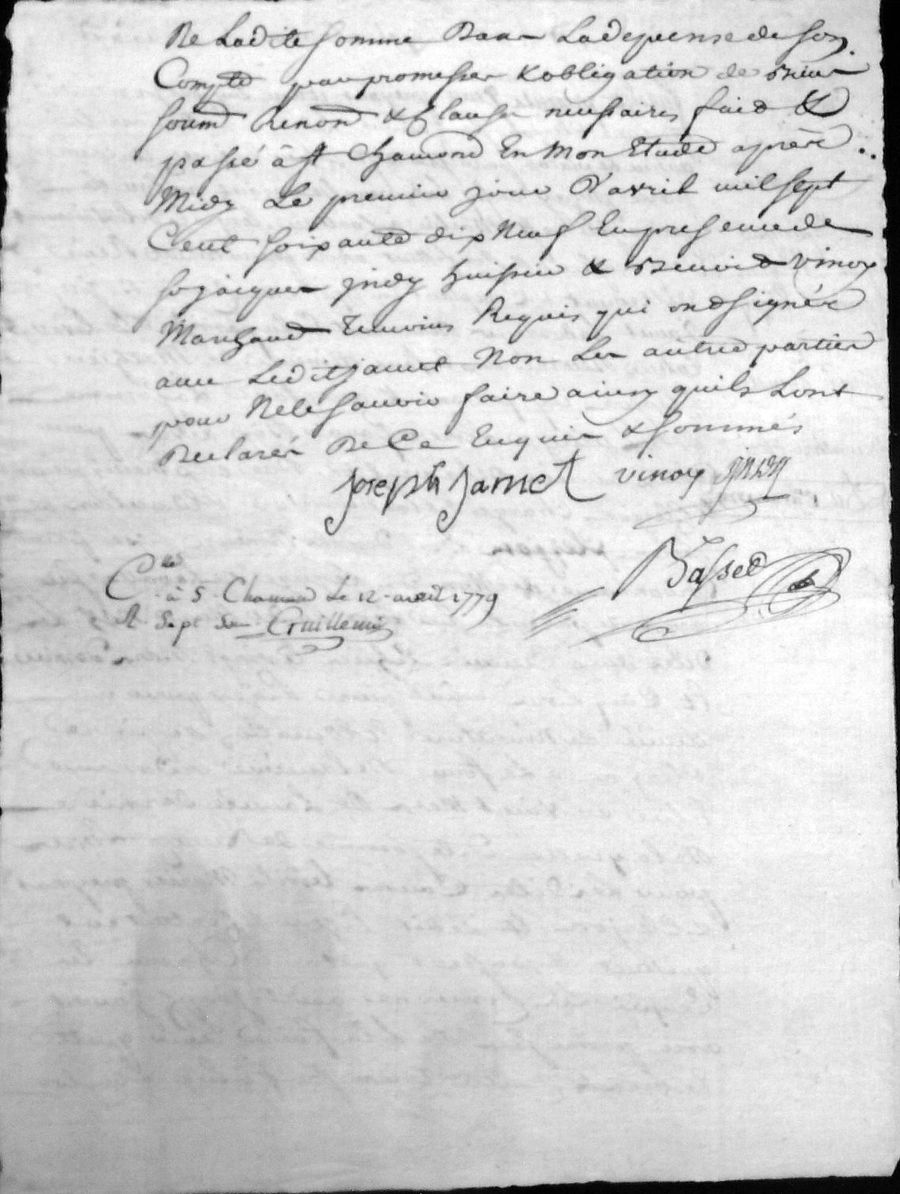 De Ladite Somme Dans La depense de son
Compte par promesses & obligation de Biens
soum Renond & Clauses necessaires fait &
passé à St Chamond En Mon Etude après
Midy Le premier jour D'avril mil sept
Cent soixante dix Neuf En presence de
sr jacques jndy huissier & Benoit vinoy
Marchand Temoins Requis qui ont signés
avec Ledit jamet Non Les autres parties
pour Ne le savoir faire ainsy quils Lont
Declarés De Ce Enquis & sommés
joseph jamet vinoy jndy
Basset
Clé à S. Chamond Le 12 avril 1779
R Sept s